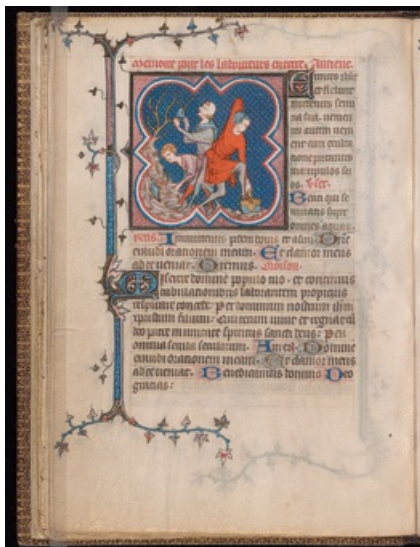 Memoire pour les laboureurs Antiene.
Euntes ibāt
et flebant
mittentes semi
na sua. venien
tes autem veni
ent cum exulta
tione portantes
manipulos su
os. Ver.
Beati qui se
minatis supr
omnes aquas
Immittentes pedem bovis et asini. Dñe
exaudi orationem meam. Et clamor meus
ad te veniat. Oremus. Oroison.
domine populo tuo et continuis
tribulationibus laborantem propicius
respirare concede. Per dominum nostrum ihm
xpistum filium. Qui tecum vivit et regnat
deo patre in unitate spiritus sancti deus. Per
omnia secula seculorum. Amen. Domine
exaudi orationem meam. Et clamor meus
ad te veniat. Benedicamus domino Deo
gratias.